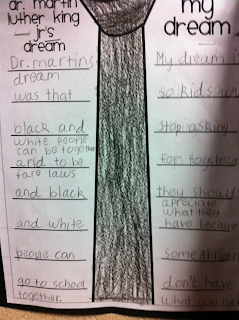 dr. martin
luther king
jr's
dream
Dr. martins
dream
was that
black and
white people
can be together
and to be
fare laws
and black
and white
people can
go to school
together.
my
dream
My dream i
so kids wi
stop asking
for toys beca
they should
apreciate
what they
have because
some African
don't have
what you have